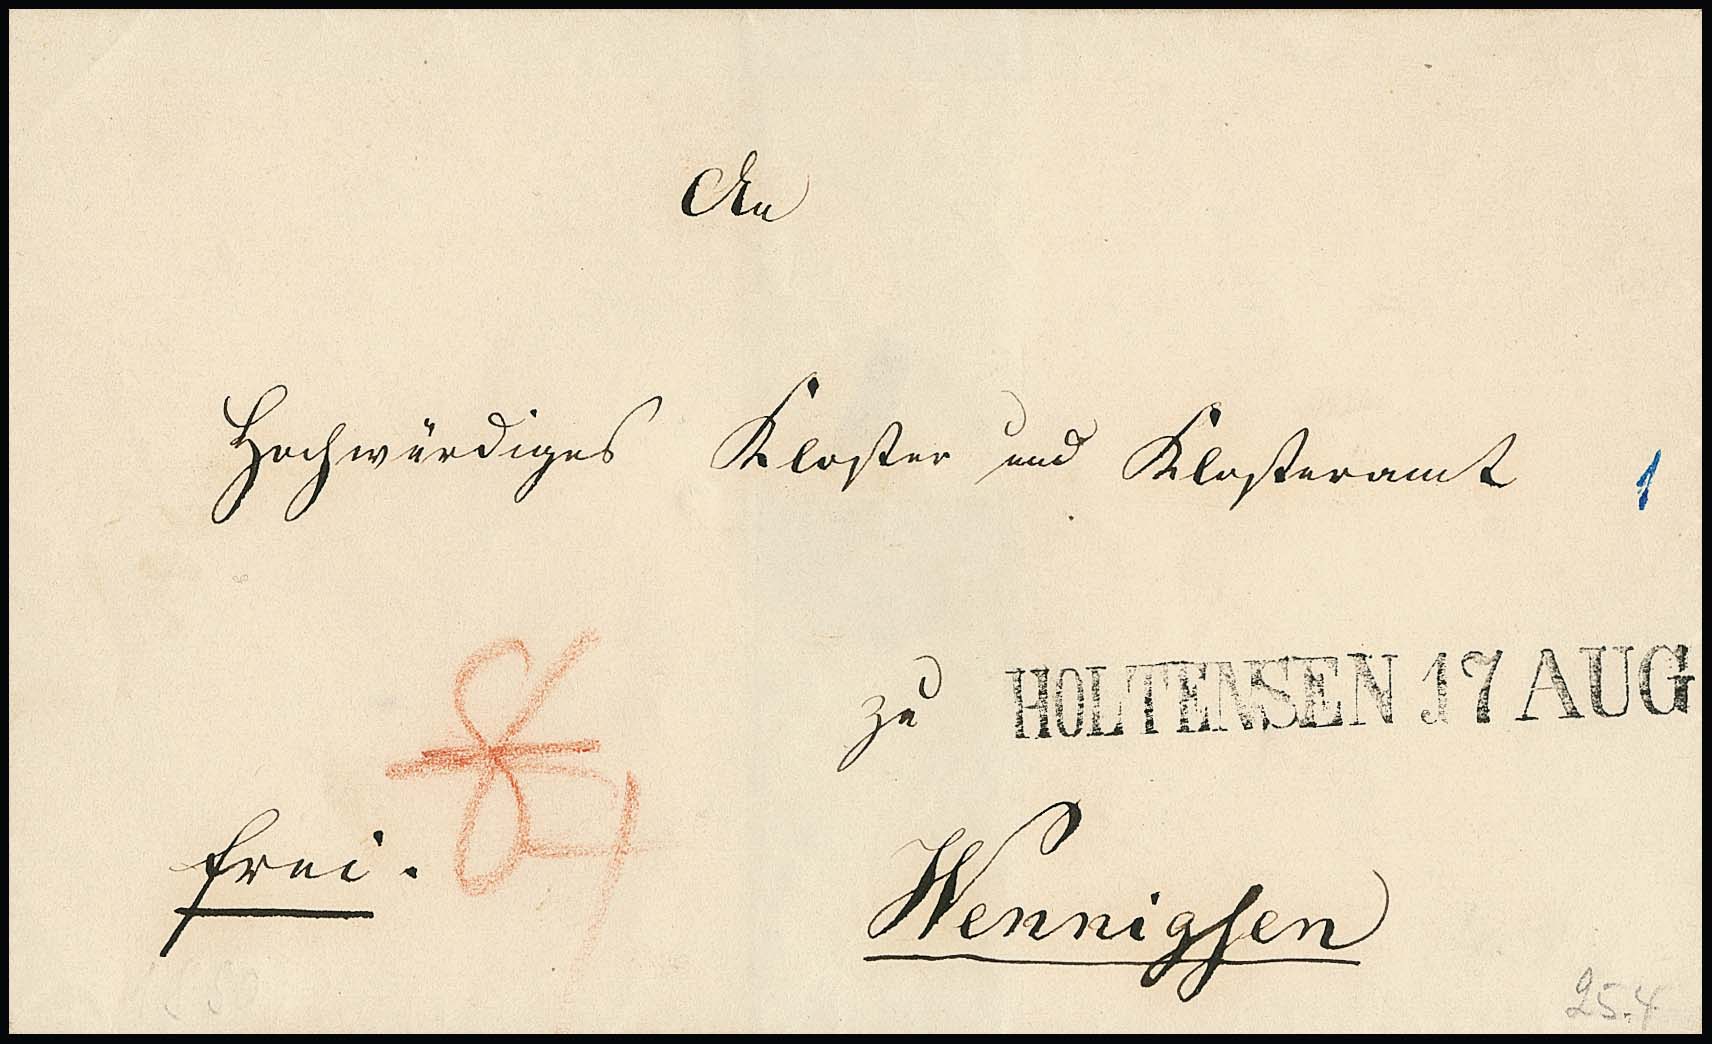 An
Hochwürdiges Kloster und Klosteramt 1
zu HOLTENSEN 17 AUG
frei.
Wennigsen
25.4